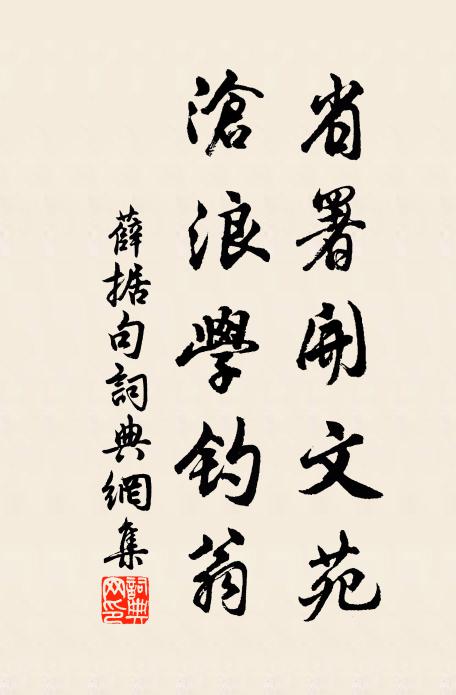 省署開文苑
滄浪學釣翁
薛据句詞典網集
詞典網印